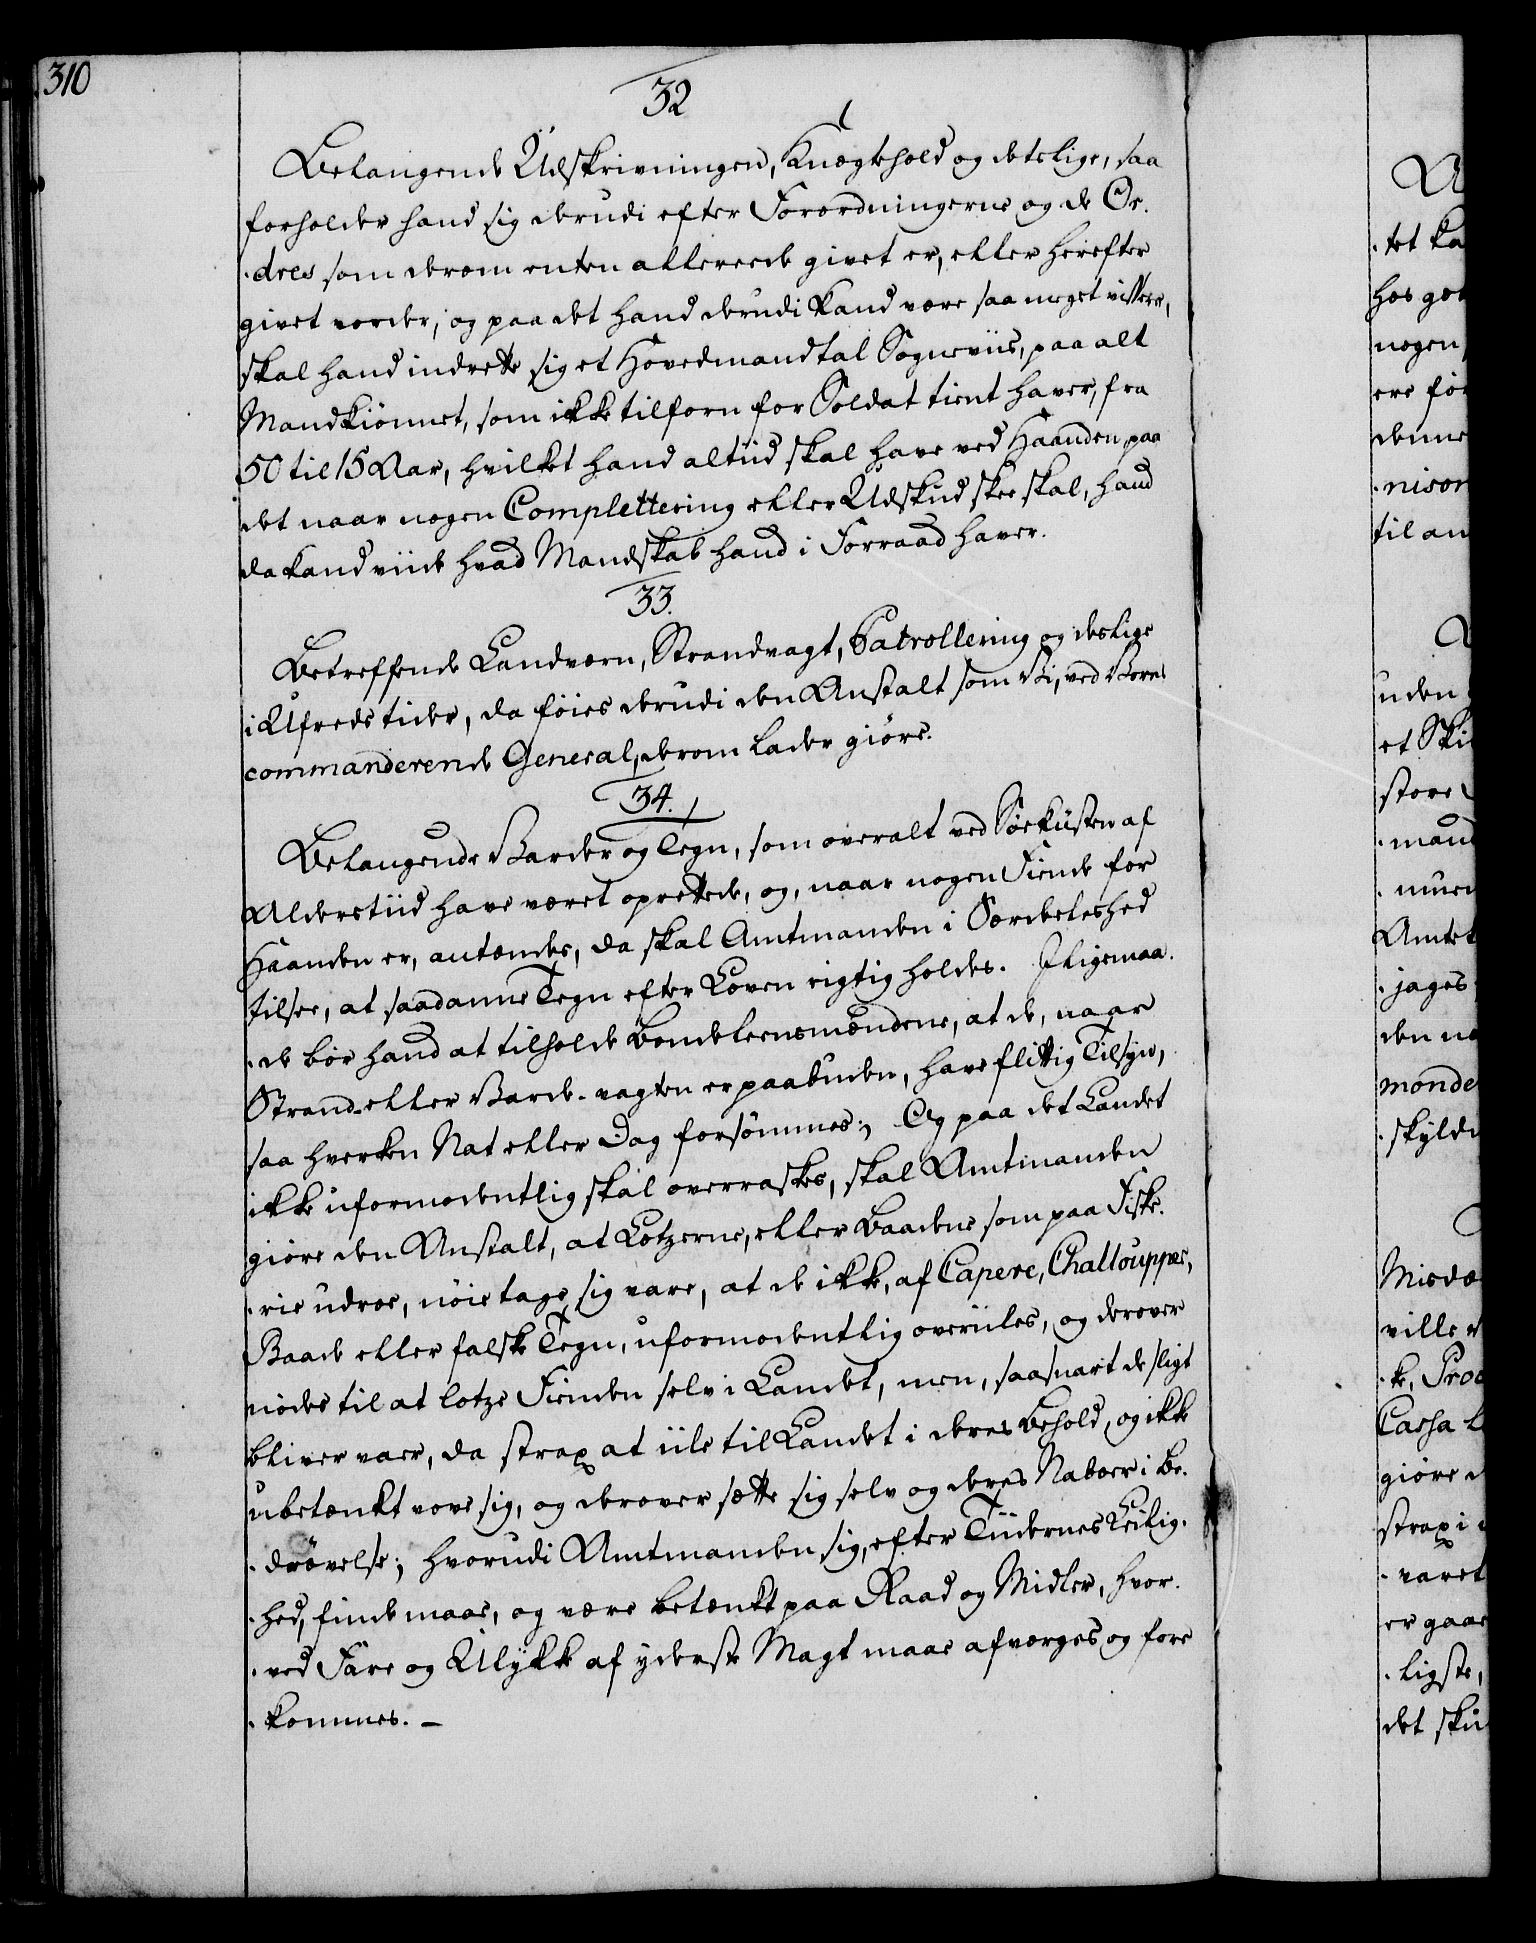 310
32
Belangende Udskrivningen, Knægtehold og detslige, saa
forholder hand sig derudi efter Forordningerne og de Or-
-dres som derom enten allereede givet er, eller herefter
givet vorder, og paa det hand derudi kand være saa meget vissere,
skal hand indrette sig et Hovedmandtal Sogneviis, paa alt
Mandkiönnet, som ikke tilforn for Soldat tient haver, fra
50 til 15 Aar, hvilket hand altiid skal have ved Haanden paa
det naar nogen Complettering eller Udskud skee skal, hand
da kand viide hvad Mandskab hand i Forraad haver.
33.
Betreffende Landværn, Strandvagt, Patrollering og deslige
i Ufreds tider, da föies derudi den Anstalt som Vi, ved Vores
commanderende General, derom lader giöre.
34.
Belangende Varder og Tegn, som overalt ved Söeküsten af
Alderstiid have været oprettede, og, naar nogen Fiende for
Haanden er, antændes, da skal Amtmanden i Særdeleshed
tilsee, at saadanne Tegn efter Loven rigtig holdes. Iligemaa-
-de bör hand at tilholde Bondelensmændene, at de, naar
Strand- eller Varde-vagten er paabuden, have flittig Tilsyn,
saa hverken Nat eller Dag forsömmes; Og paa det Landet
ikke uformodentlig skal overraskes, skal Amtmanden
giöre den Anstalt, at Lotzerne, eller Baadene som paa Fiske-
-rie udroe, nöie tage sig vare, at de ikke, af Capere, Challoupper,
Baade eller falske Tegn, uformodentlig overiiles, og derover
nödes til at lotze Fienden selv i Landet, men, saasnart de sligt
bliver vaer, da strax at iile til Landet i deres Behold, og ikke
ubetænkt vove sig, og derover sætte sig selv og deres Naboer i Be-
-drövelse; hvorudi Amtmanden sig, efter Tiidernes Leilig-
-hed, finde maae, og være betænkt paa Raad og Midler, hvor-
-ved Fare og Ulykke af yderste Magt maae afværges og fore
-kommes. -
-tet ka
nogen
ere for
denne
-nison
til an
uden
et Ski
store
-mand
Amtet
-jages
monde
-skyld
Misdæ
ville
Cassa
giöre
strax i
-varet
er gaae
-ligste,
det sku